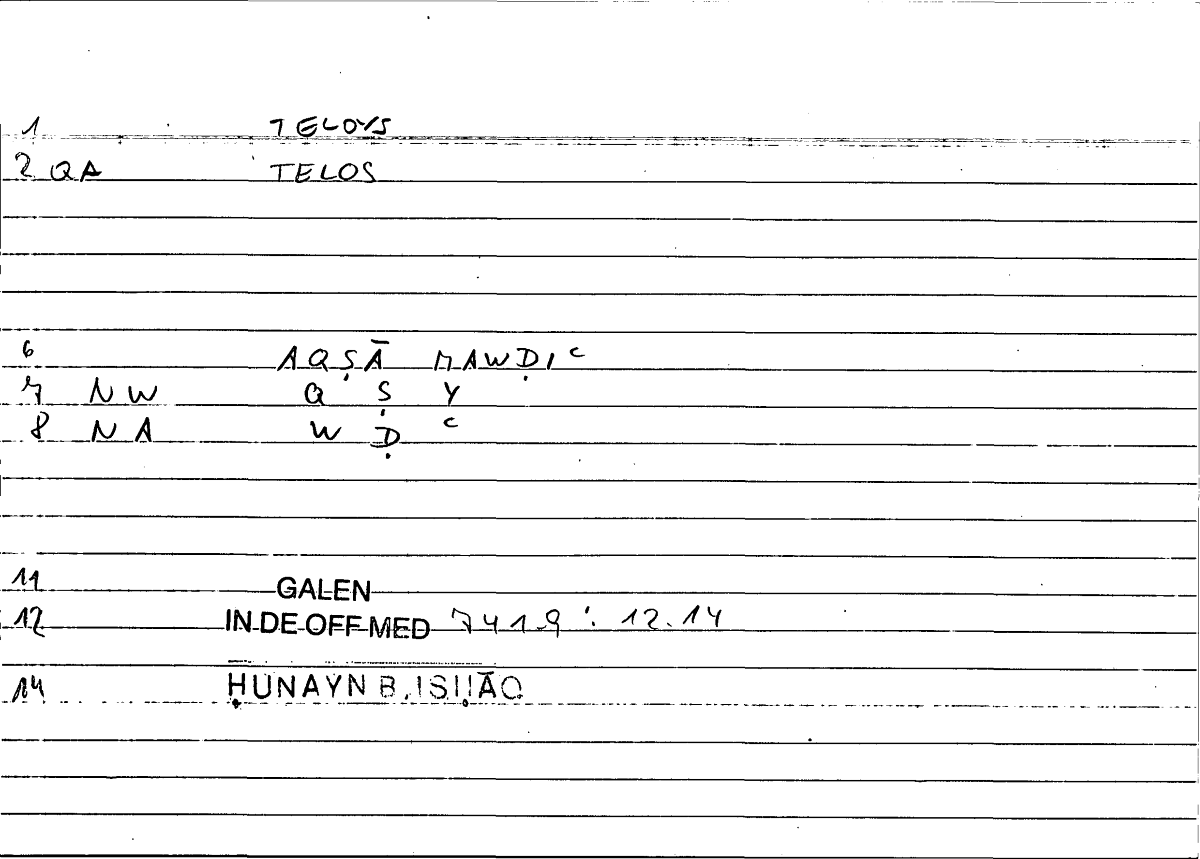 1 TELOYS
2 QA TELOS
6 AQṢĀ MAWḌIC
7 NW Q Ṣ Y
8 NA W Ḍ C
11 GALEN
12 IN DE OFF MED 741.9 : 12.14
14 ḤUNAYN B. ISḤĀQ